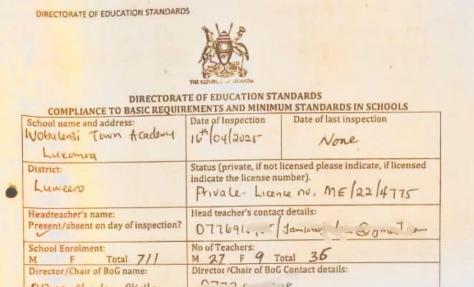 DIRECTORATE OF EDUCATION STANDARDS
THE REPUBLIC OF UGANDA
DIRECTORATE OF EDUCATION STANDARDS
COMPLIANCE TO BASIC REQUIREMENTS AND MINIMUM STANDARDS IN SCHOOLS
School name and address:
Wobulenzi Town Academy
Date of Inspection
16th/04/2025
Date of last inspection
None
District:
Luweero
Status (private, if not licensed please indicate, if licensed
indicate the license number).
Private - Licence no. ME/22/4775
Headteacher's name:
Present/absent on day of inspection?
Head teacher's contact details:
School Enrolment:
M F Total 711
No of Teachers:
M 27 F 9 Total 36
Director/Chair of BoG name:
Director /Chair of BoG Contact details: